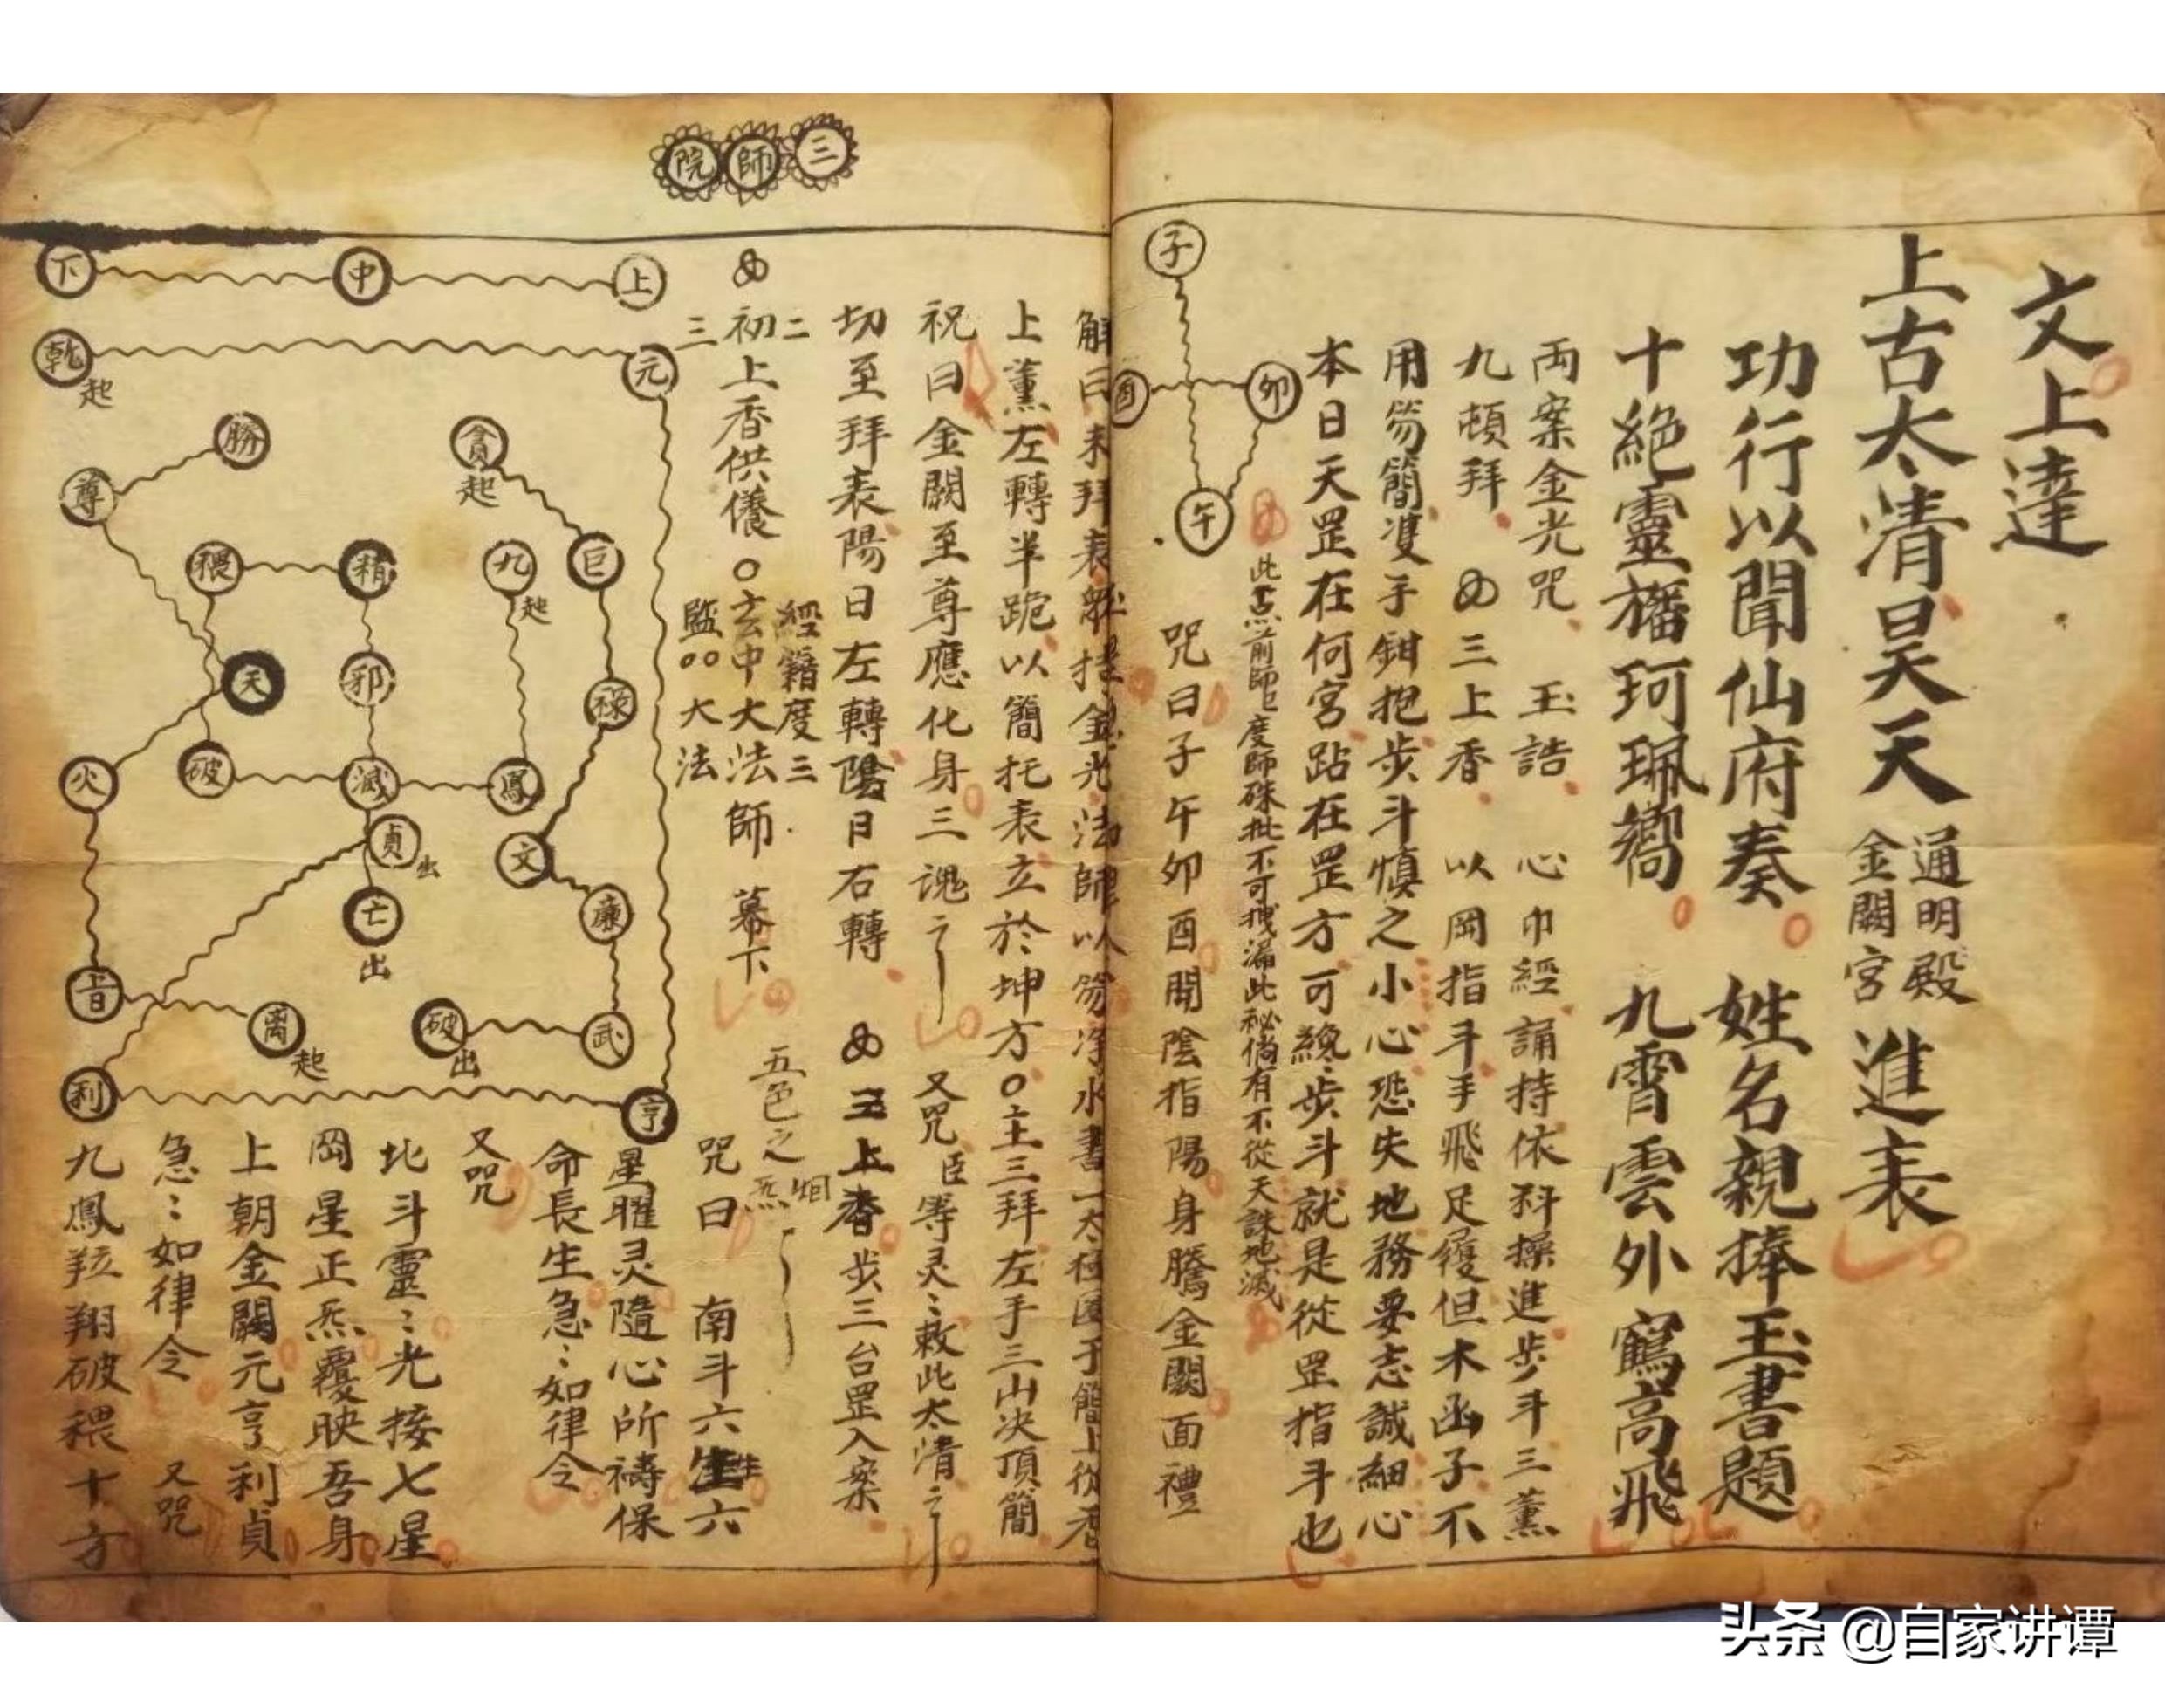 文上達
上古太清昊天
通明殿
金闕宮
進表
功行以聞仙府奏 姓名親捧玉書題
十絕靈旛珂珮嚮 九霄雲外鶴高飛
両案金光咒 玉誥 心巾經誦持依科操進步斗三薰
九頓拜 三上香 以岡指斗手飛足履但木函子不
用笏簡䨇手鉗抱步斗慎之小心恐失地務要志誠細心
本日天罡在何宮跕在罡方可纔步斗就是從罡指斗也
此点前師度師硃批不可拽漏此祕倘有不從天誅地滅
子
卯
酉
午
咒曰子午卯酉開陰指陽身騰金闕面禮
三師院
解曰未拜表 金光法師以笏淨水書一太極圖于簡上從
上薰左轉半跪以簡托表立於坤方○主三拜左手三山決頂簡
祝曰金闕至尊應化身三魂 又咒臣等灵〻敕此太清
切至拜表陽日左轉陰日右轉 三上香步三台罡入案
二
初上香供儀○玄中大法師 幕下
三
經籍度三
監 大法
五色之炁烟
上
中
下
乾
起
元
勝
尊
貪
起
猥
精
九
起
巨
天
邪
祿
火
破
滅
鳳
貞
出
文
亡
出
廉
音
离
起
破
出
武
利
亨
咒曰 南斗六
生六
星曜灵隨心所禱保
命長生急〻如律令
又咒
北斗靈〻光接七星
岡星正炁覆映吾身
上朝金闕元亨利貞
急〻如律令 又咒
九鳳翱翔破猥十方
头条 @自家讲谭